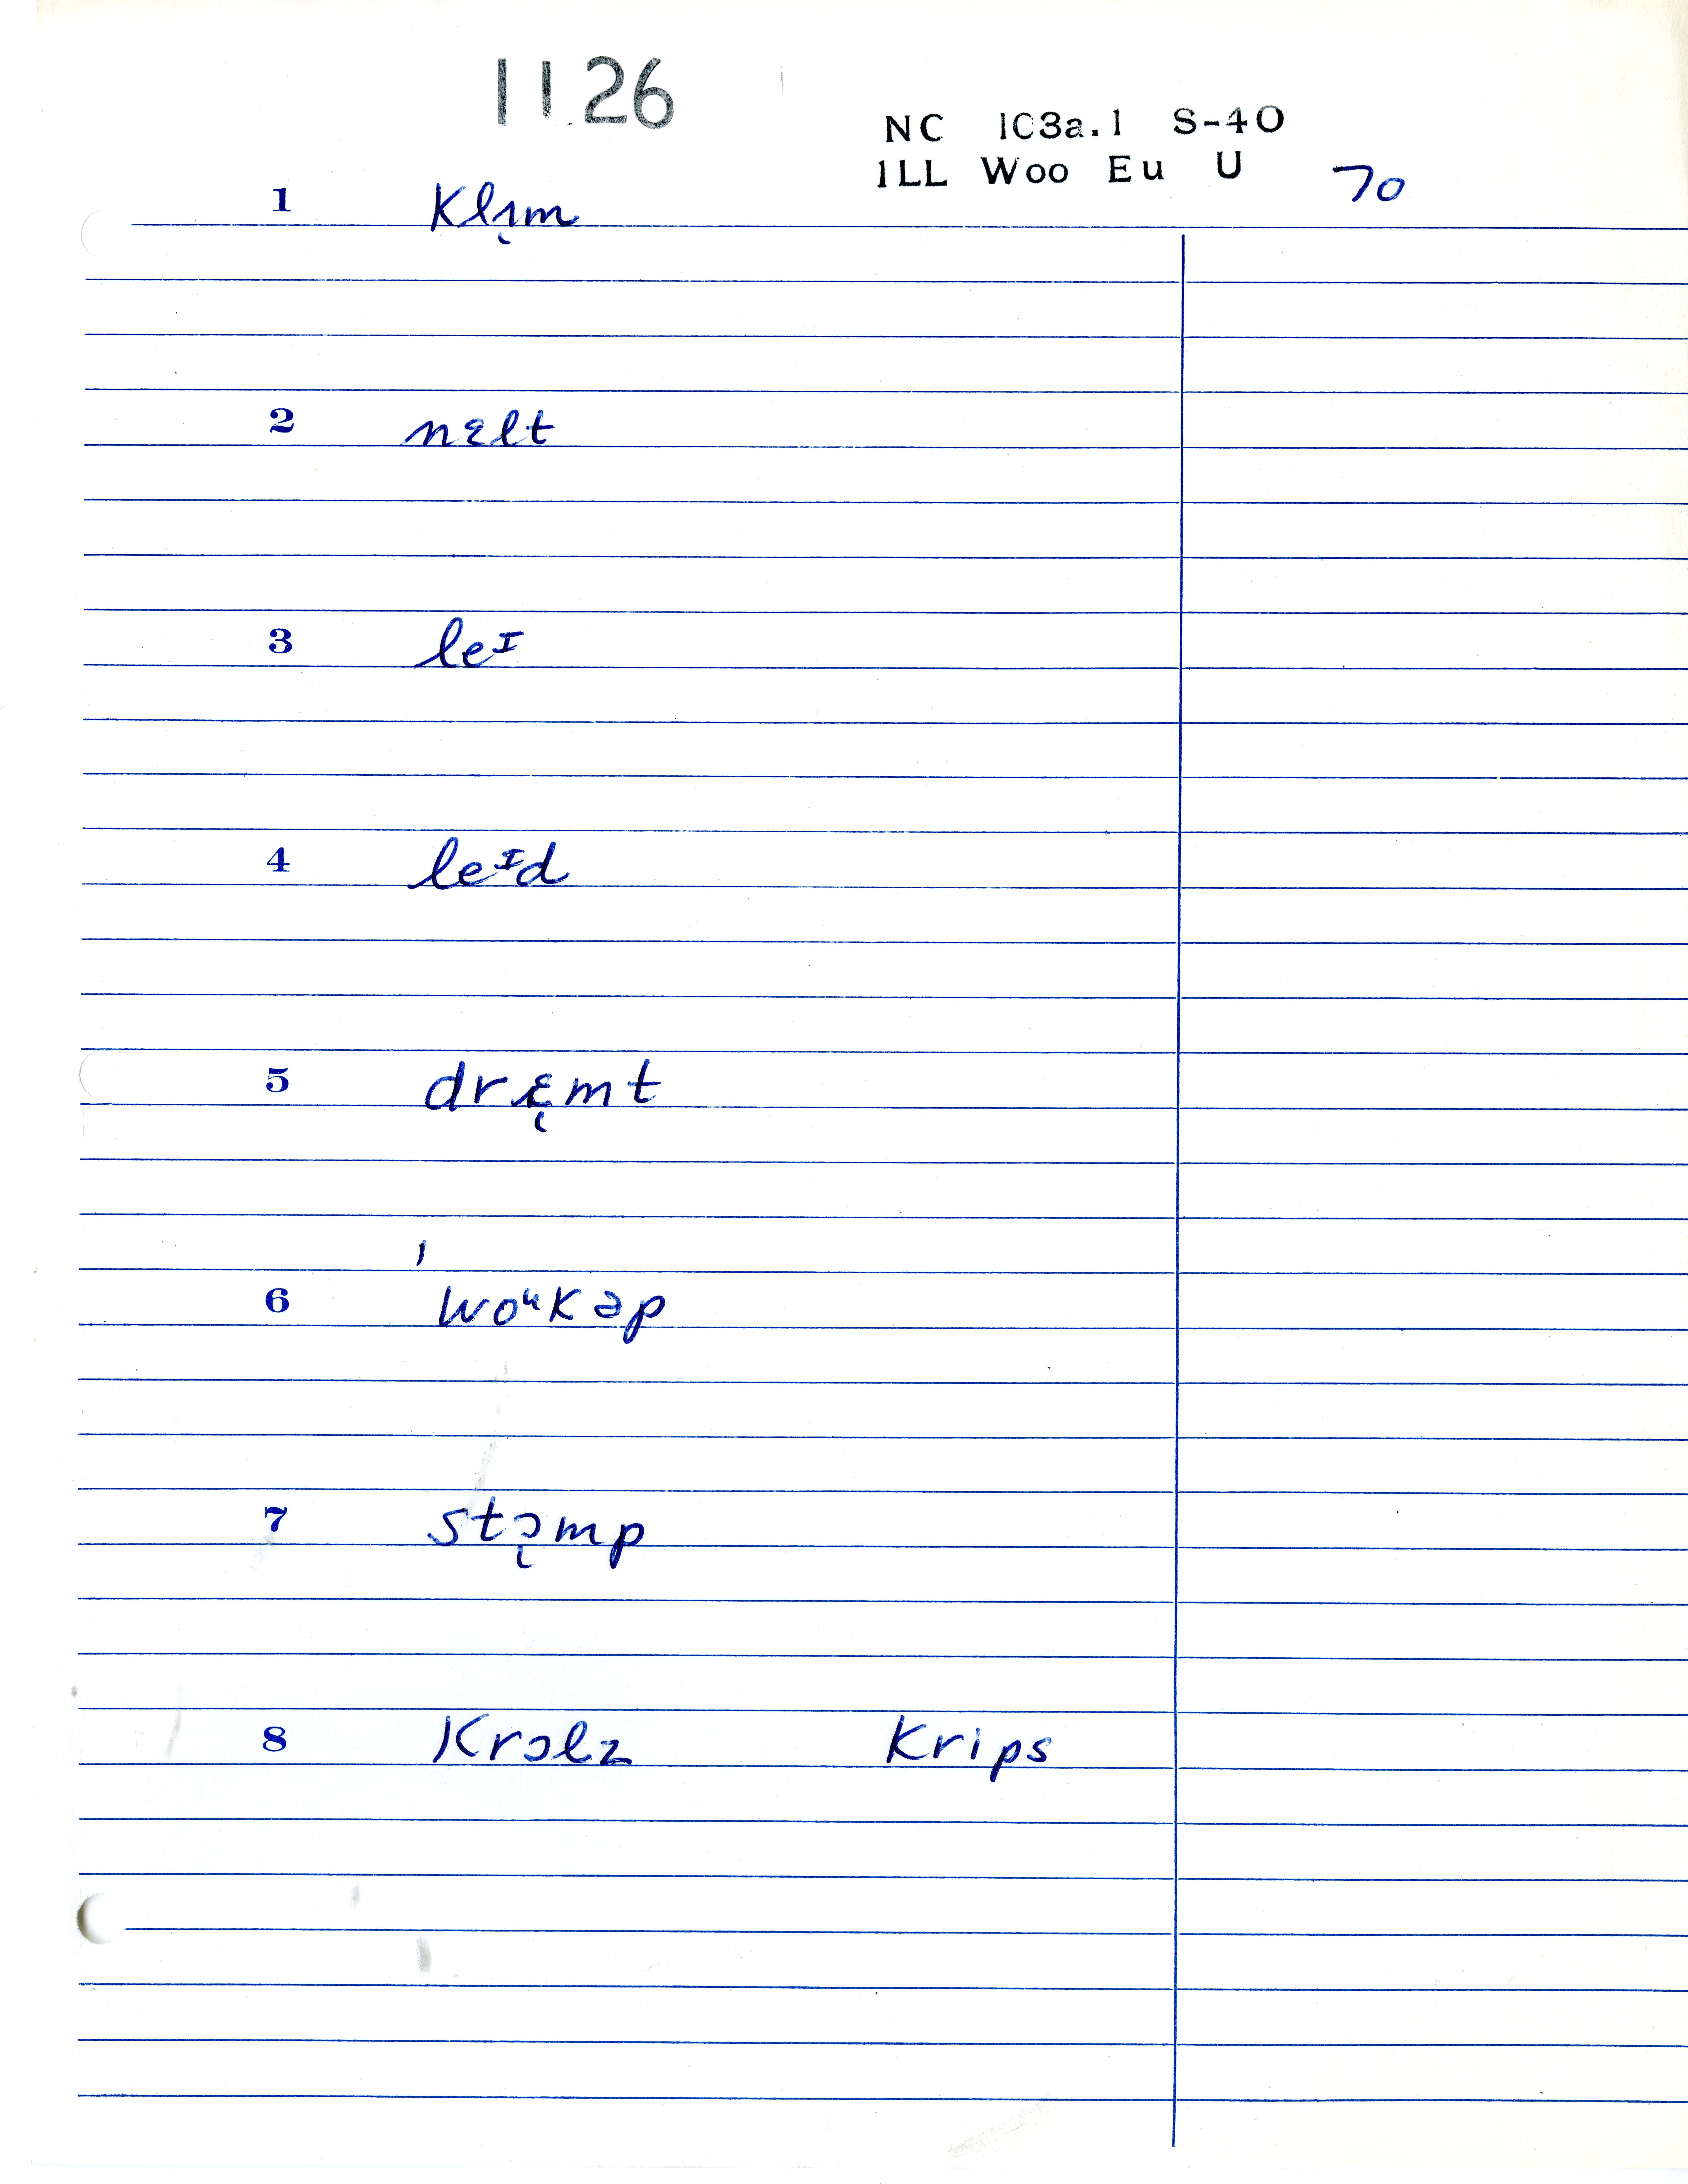 1126
NC 1C3a.1 S-40
ILL Woo Eu U 70
1 Klɪ̨m
2 nɛlt
3 leᶦ
4 leᶦd
5 drɛ̨mt
6 ˈwoᵘkəp
7 stɔ̨mp
8 Krɔlz Krips